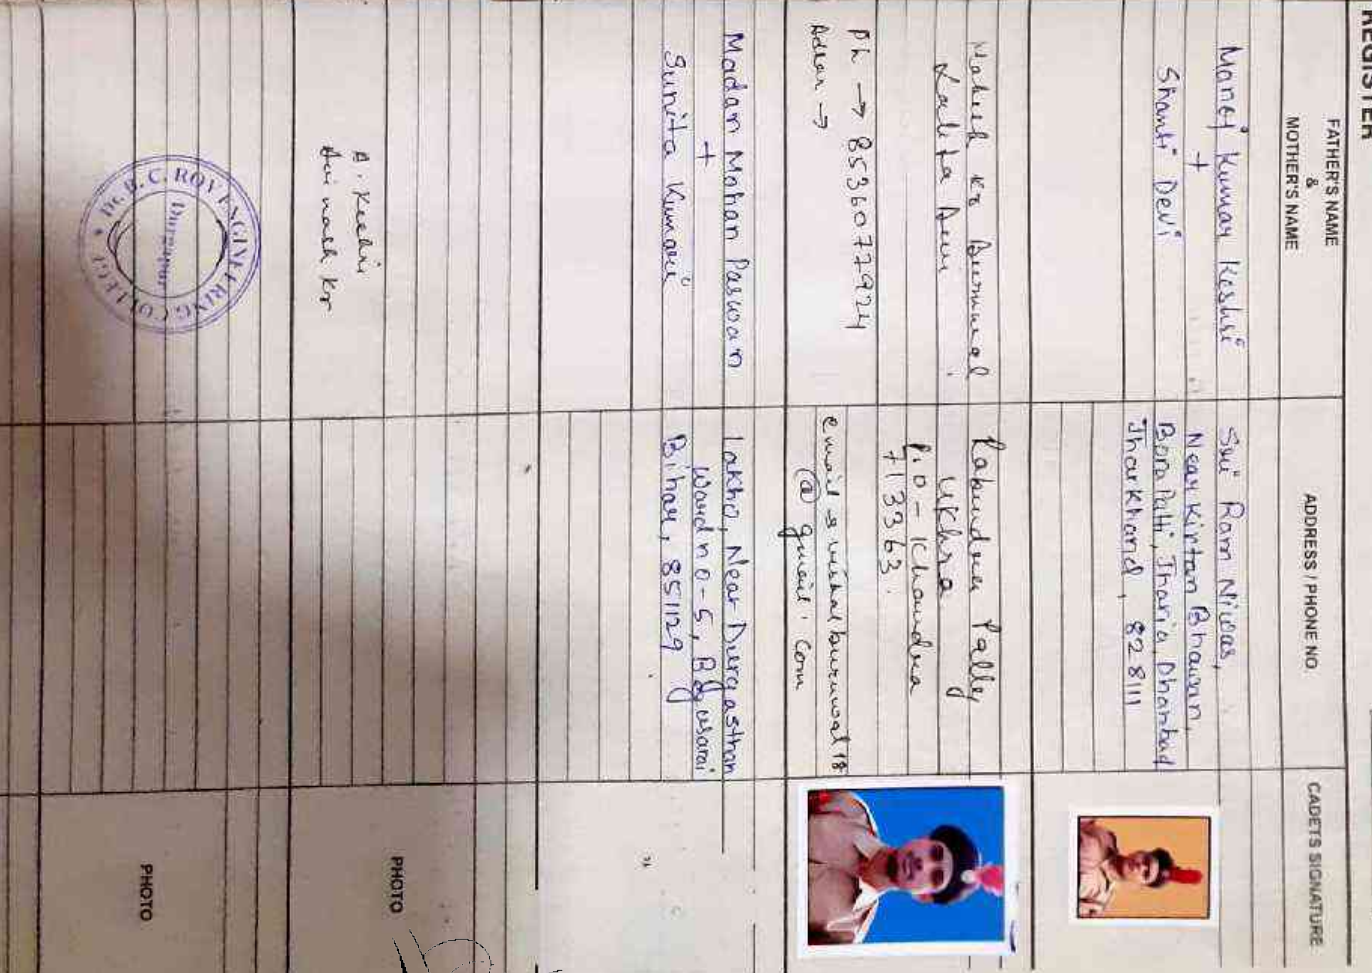 REGISTER
FATHER'S NAME
&
MOTHER'S NAME
ADDRESS / PHONE NO.
CADETS SIGNATURE
Manoj Kumar Keshri
+
Shanti Devi
Sri Ram Niwas,
Near Kirtan Bhawan,
Bora Patti, Jharia, Dhanbad
Jharkhand, 828111
Mahesh Kr Burnwal
Lalita Devi
Ph → 85360772924
Rabindra Pally
Ukhra
P.O - Khandra
713363.
email → vishalburnwal18
@ gmail. com
Madan Mohan Paswan
+
Sunita Kumari
Lakho, Near Durgasthan
Ward no-5, Begusarai
Bihar, 851129
A. Keshri
Avinash Kr
PHOTO
Dr. B. C. ROY ENGINEERING COLLEGE
Durgapur
PHOTO